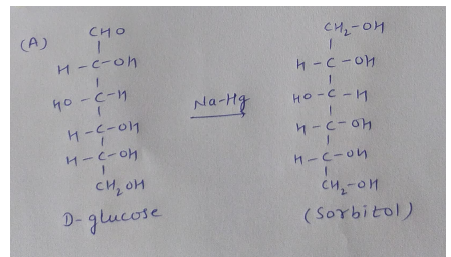 (A)
CHO
H - C - OH
HO - C - H
H - C - OH
H - C - OH
CH2OH
D-glucose
Na-Hg
CH2-OH
H - C - OH
HO - C - H
H - C - OH
H - C - OH
CH2-OH
(Sorbitol)